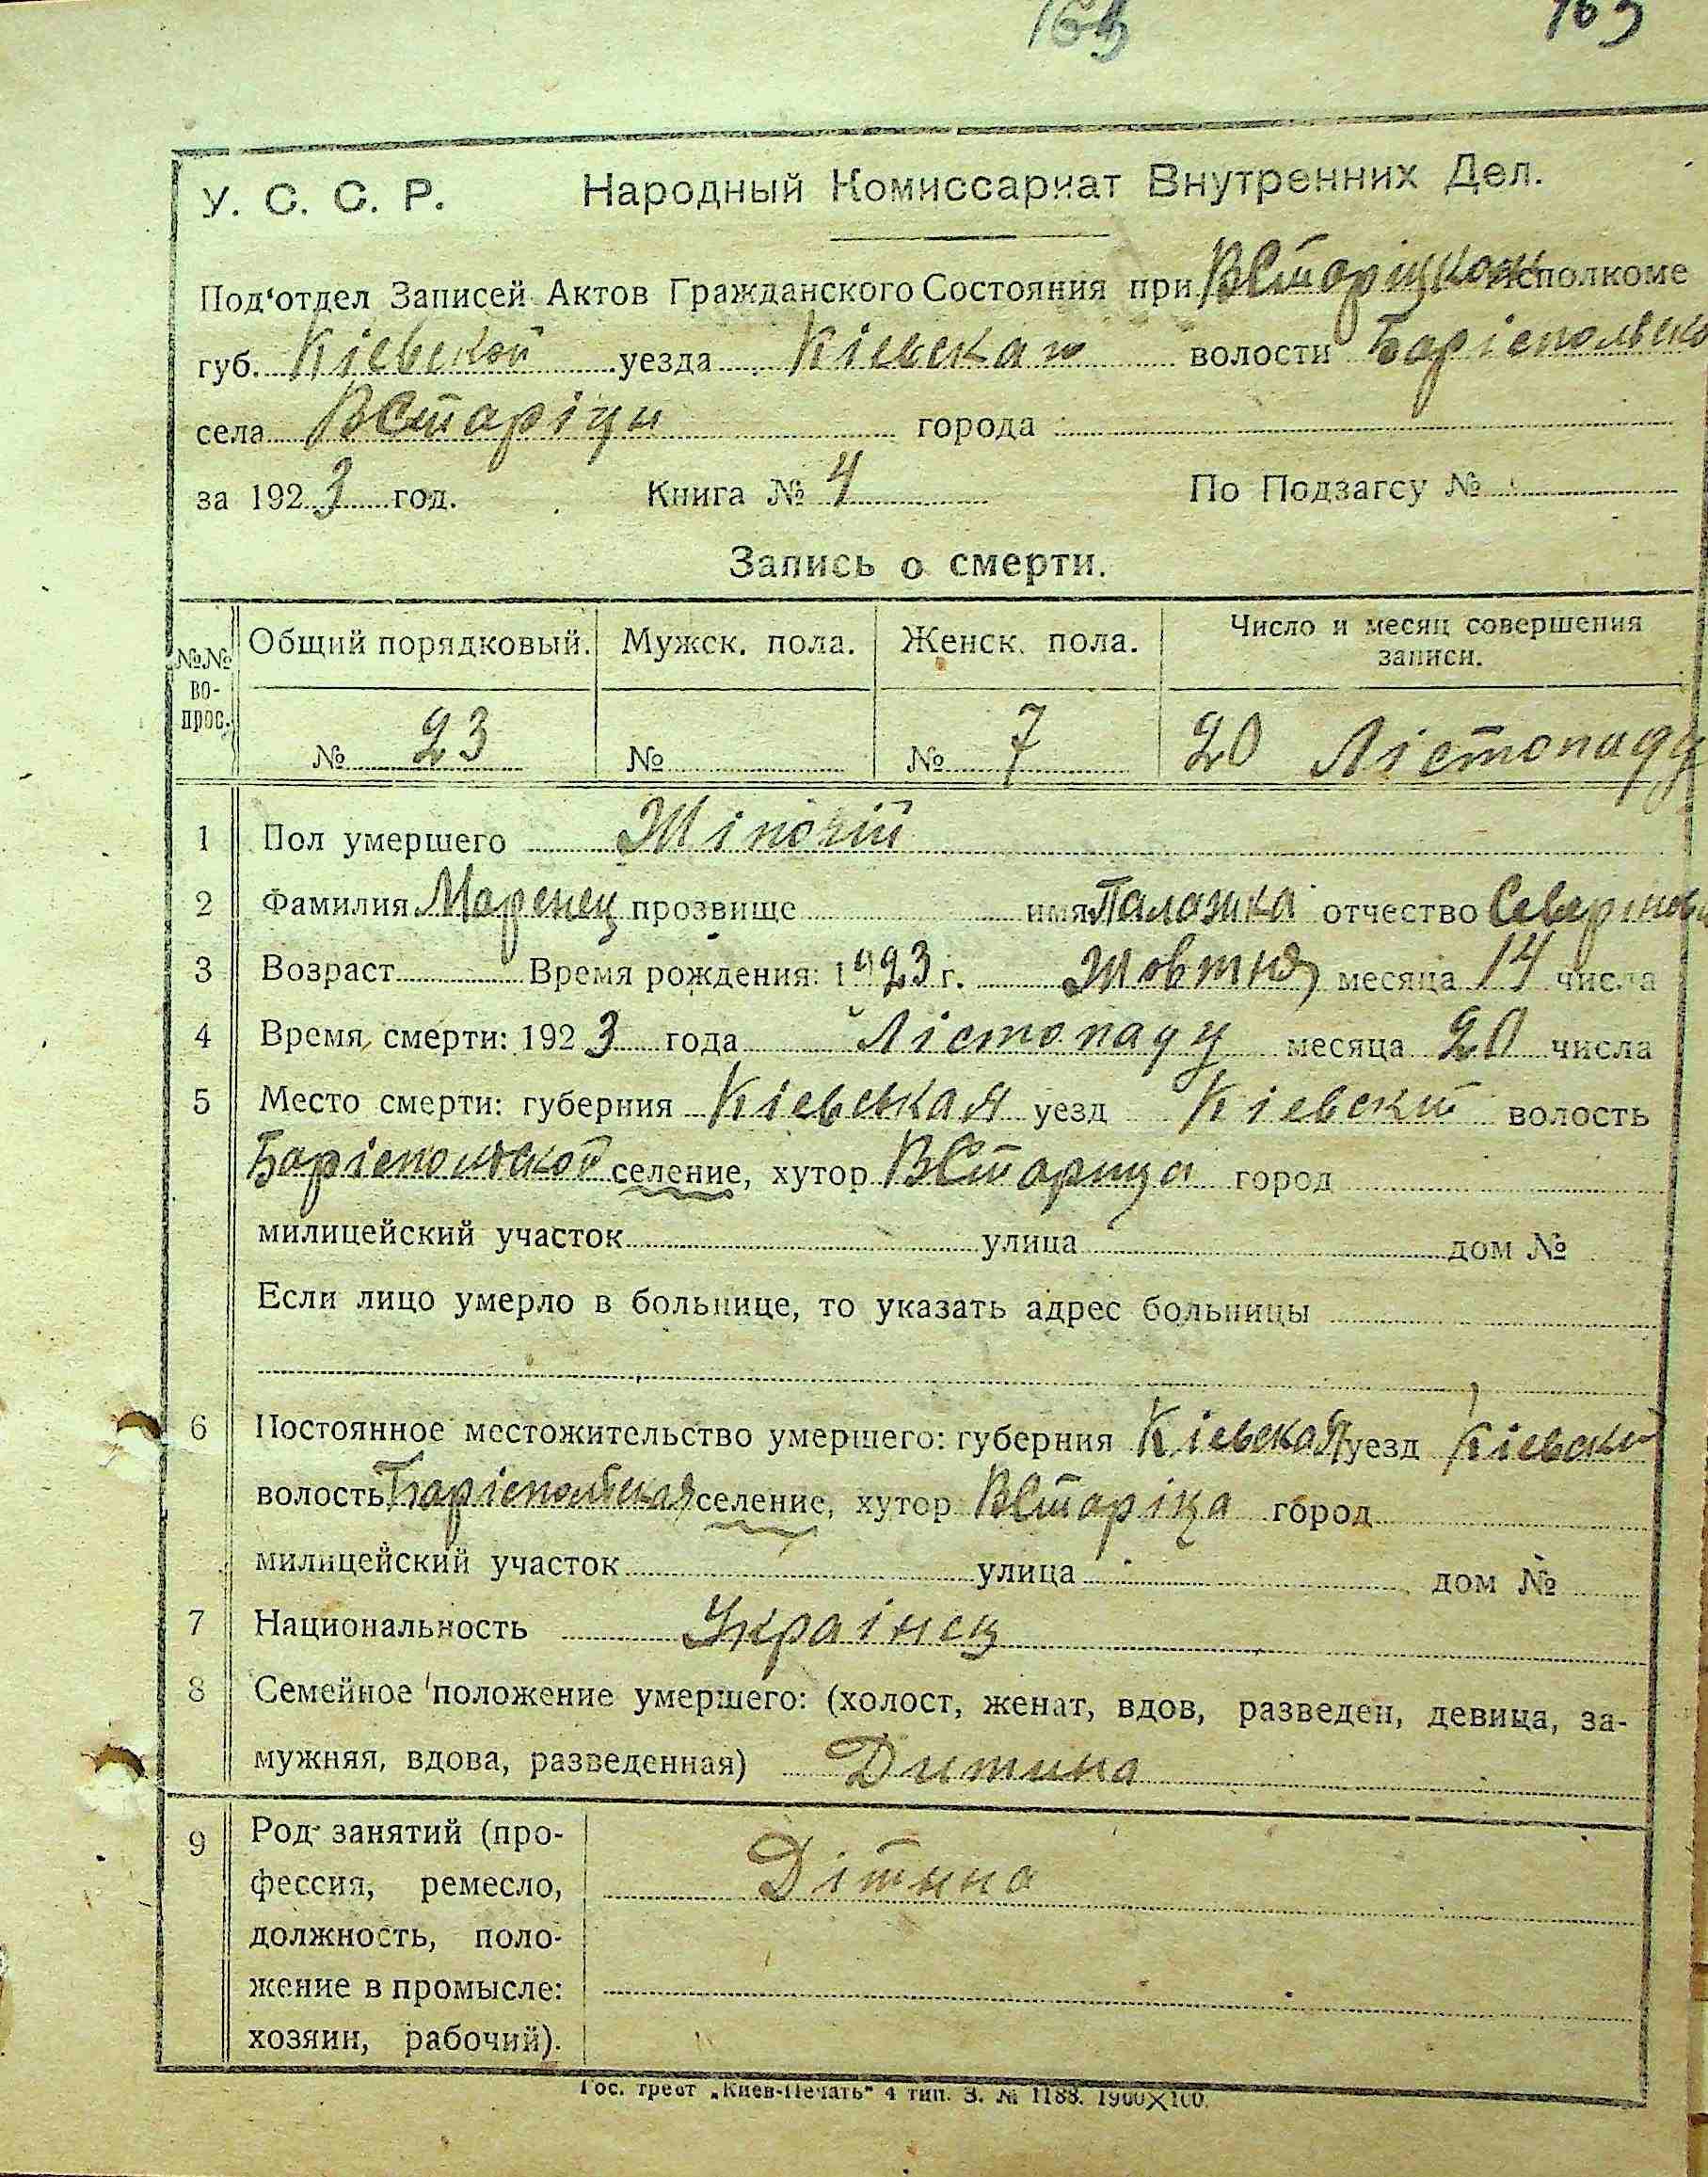 163
У. С. С. Р. Народный Комиссариат Внутренних Дел.
Под'отдел Записей Актов Гражданского Состояния при ВСтаріцком исполкоме
губ. Кіевской уезда Кіевскаго волости Боріспольско
села ВСтаріци города
за 1923 год. Книга № 4 По Подзагсу №
Запись о смерти.
№№ во-прос. Общий порядковый. Мужск. пола. Женск. пола. Число и месяц совершения записи.
№ 23 № № 7 20 Лістопаду
1 Пол умершего Жіночій
2 Фамилия Маренец прозвище имя Палажка отчество Северінов
3 Возраст Время рождения: 1923 г. Жовтня месяца 14 числа
4 Время смерти: 1923 года Лістопаду месяца 20 числа
5 Место смерти: губерния Кіевская уезд Кіевский волость
Боріспольской селение, хутор ВСтарица город
милицейский участок улица дом №
Если лицо умерло в больнице, то указать адрес больницы
6 Постоянное местожительство умершего: губерния Кіевская уезд Кіевский
волость Боріспольская селение, хутор ВСтаріца город
милицейский участок улица дом №
7 Национальность Українец
8 Семейное положение умершего: (холост, женат, вдов, разведен, девица, за-
мужняя, вдова, разведенная) Дитина
9 Род занятий (про-
фессия, ремесло, Дітина
должность, поло-
жение в промысле:
хозяин, рабочий).
Гос. трест „Киев-Печать" 4 тип. З. № 1188. 1900×100.